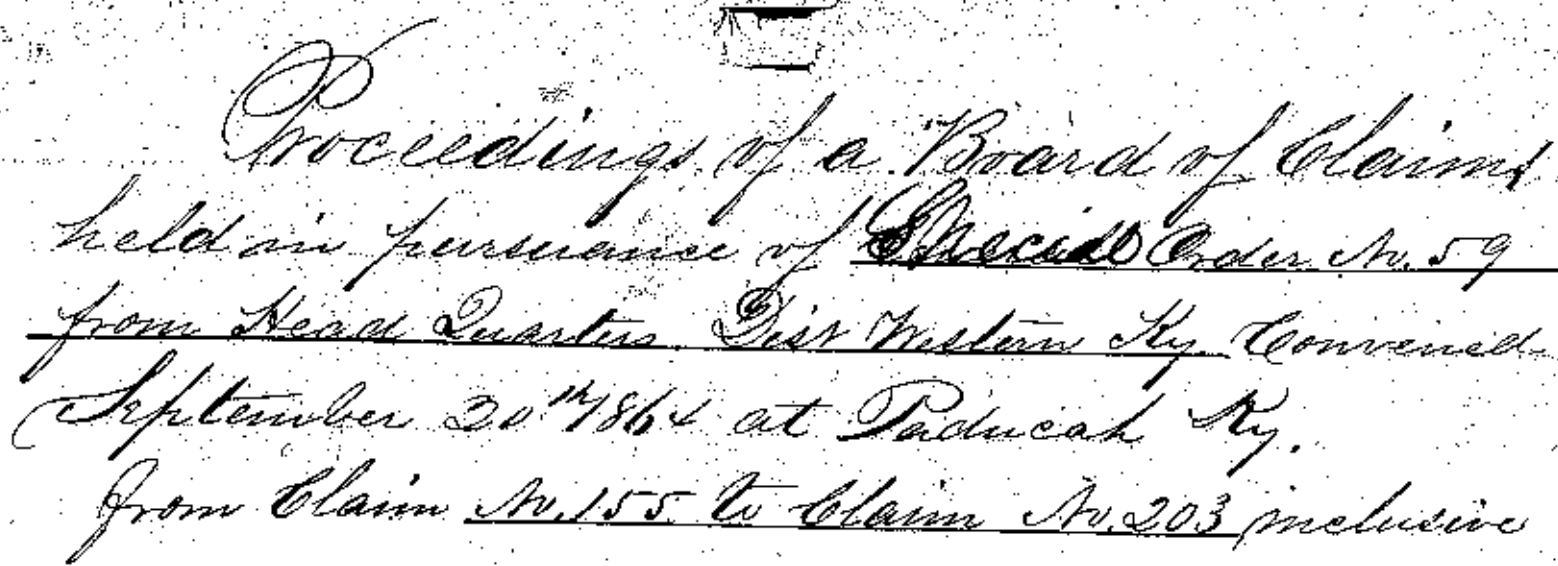 Proceedings of a Board of Claims
held in pursuance of Special Order No. 59
from Head Quarters Dist Western Ky. Convened
September 20th 1864 at Paducah Ky.
from Claim No. 155 to Claim No. 203 inclusive